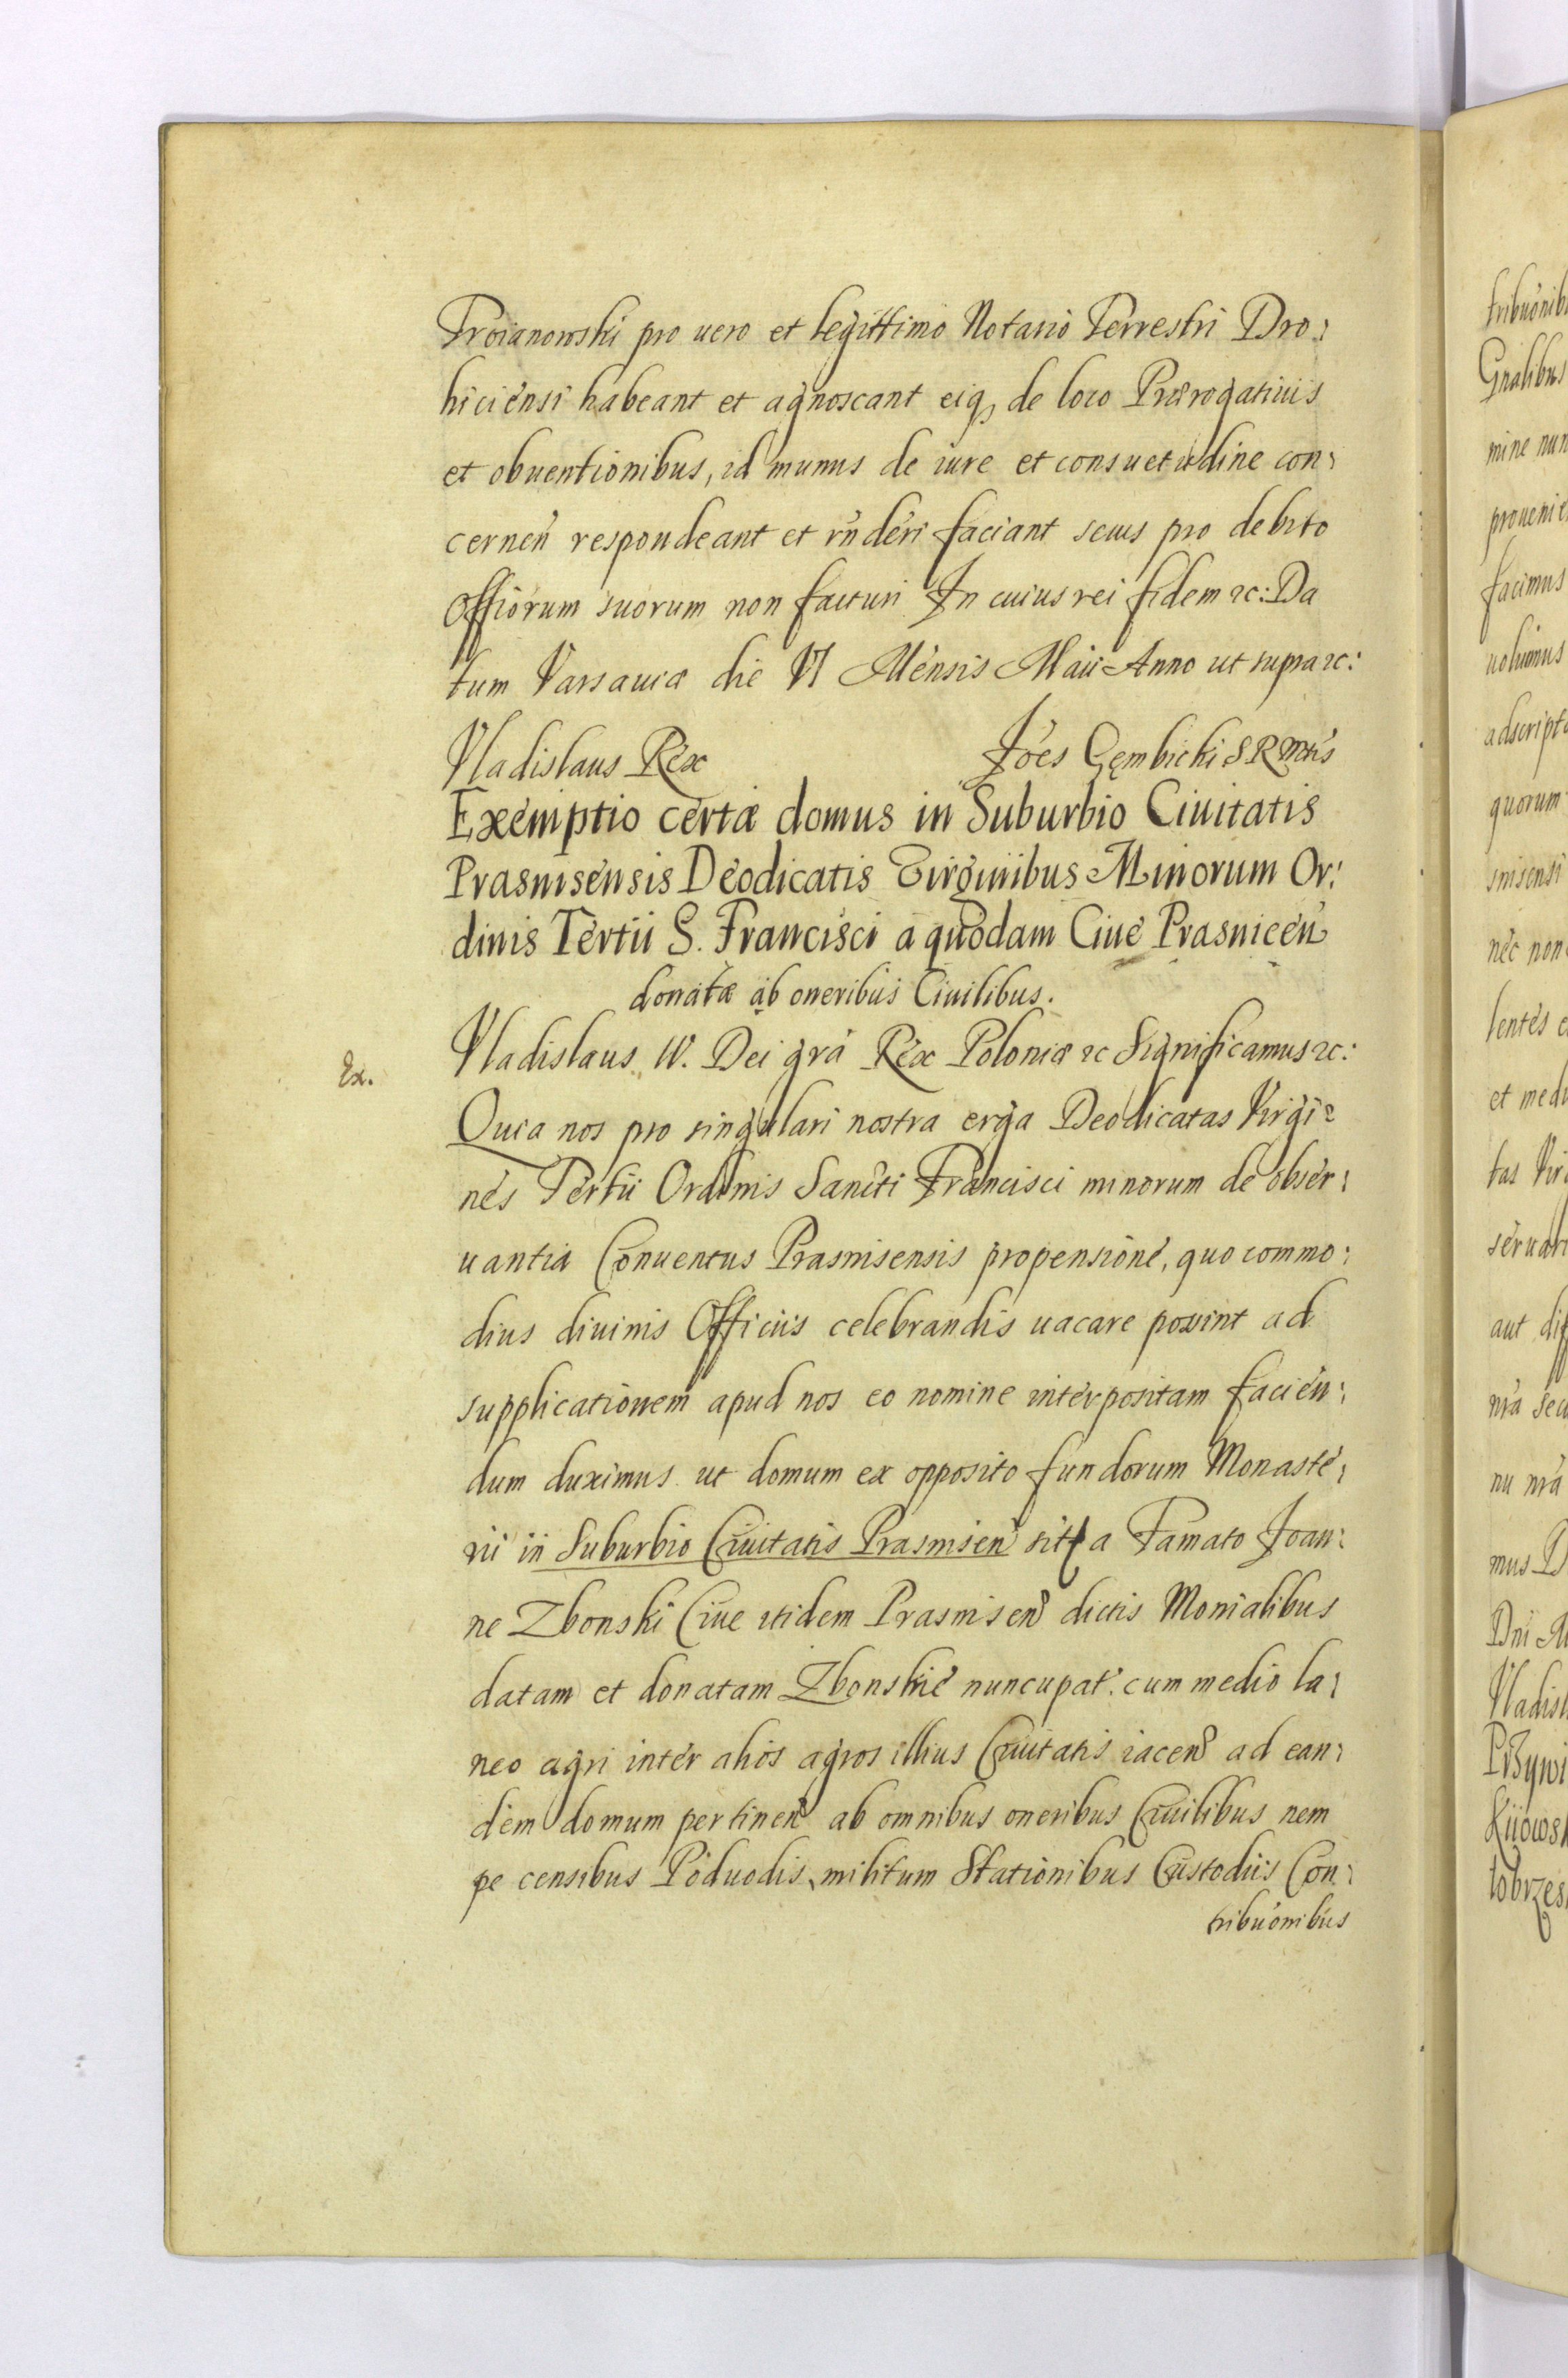 Troianowski pro uero et legittimo Notario Terrestri Dro:
hiciensi habeant et agnoscant eiq, de loco Prærogatiuis
et obuentionibus, id munus de iure et consuetudine con:
cernen respondeant et rnderi faciant secus pro debito
Offiorum suorum non facturi In cuius rei fidem &c: Da
tum Varsauiæ die VI Mensis Maii Anno ut supra &c:
Vladislaus Rex Joes Gembicki S R Mtis
Exemptio certæ domus in Suburbio Ciuitatis
Prasnisensis Deodicatis Virginibus Minorum Or:
dinis Tertii S. Francisci a quodam Ciue Prasnicen
donatæ ab oneribus Ciuilibus.
Ex.
Vladislaus IV. Dei gra Rex Poloniæ &c Significamus &c:
Quia nos pro singulari nostra erga Deodicatas Virgi:
nes Tertii Ordinis Sancti Francisci minorum de obser:
uantia Conuentus Prasnisensis propensione, quo commo:
dius diuinis Officiis celebrandis uacare possint ad
supplicationem apud nos eo nomine interpositam facien:
dum duximus ut domum ex opposito fundorum Monaste:
rii in Suburbio Ciuitatis Prasnisen sit a Famato Joan:
ne Zbonski Ciue itidem Prasnisen dictis Monialibus
datam et donatam Zbonskie nuncupat. cum medio la:
neo agri inter alios agros illius Ciuitatis iacen ad ean:
dem domum pertinen ab omnibus oneribus Ciuilibus nem
pe censibus Poduodis, militum Stationibus Custodiis Con:
tribuonibus
tribuonib
Gnalibus
mine nun
prouenie
facimus
uolumus
adscript
quorum
snisensi
nec non
lentes e
et med
tas Vir
seruar
aut dif
nra sec
nu nra
mus D
Dni
Vladis
Przywi
Kiiows
lobrzes